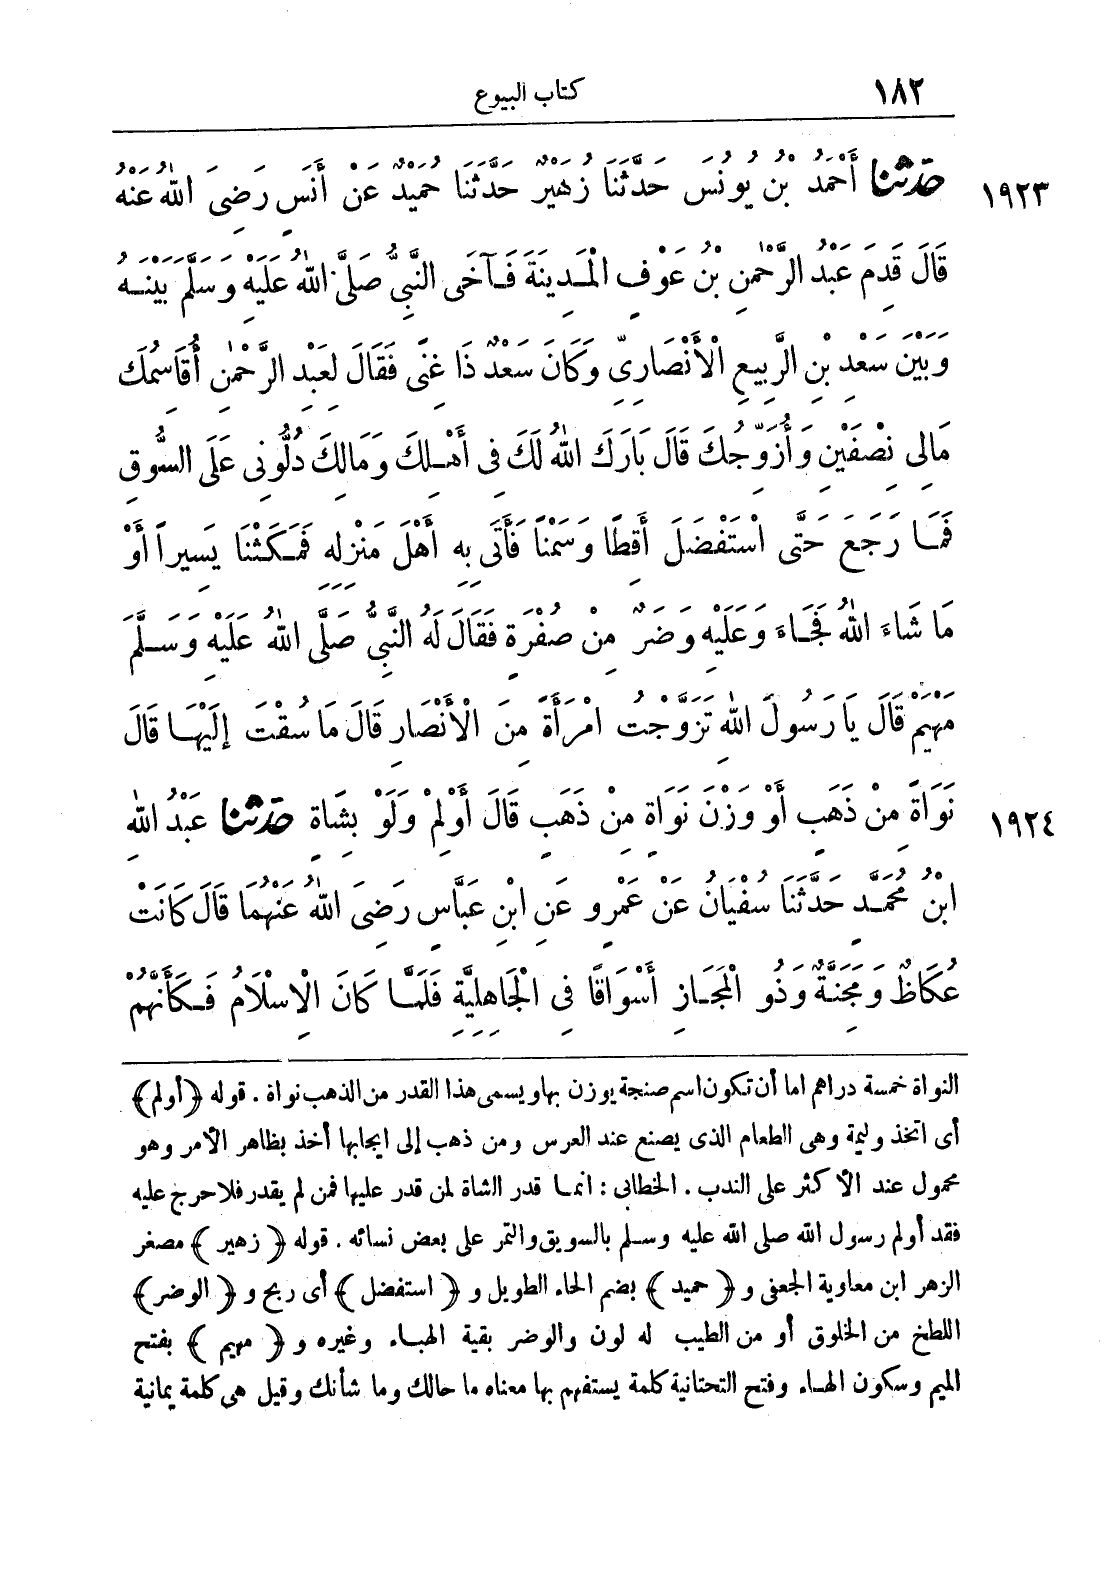 ١٨٢ كتاب البيوع
١٩٢٣ حَدَّثَنَا أَحْمَدُ بْنُ يُونُسَ حَدَّثَنَا زُهَيْرٌ حَدَّثَنَا حُمَيْدٌ عَنْ أَنَسٍ رَضِىَ اللهُ عَنْهُ
قَالَ قَدِمَ عَبْدُ الرَّحْمٰنِ بْنُ عَوْفٍ الْمَدِينَةَ فَآخَى النَّبِىُّ صَلَّى اللهُ عَلَيْهِ وَسَلَّمَ بَيْنَهُ
وَبَيْنَ سَعْدِ بْنِ الرَّبِيعِ الْأَنْصَارِىِّ وَكَانَ سَعْدٌ ذَا غِنًى فَقَالَ لِعَبْدِ الرَّحْمٰنِ أُقَاسِمُكَ
مَالِى نِصْفَيْنِ وَأُزَوِّجُكَ قَالَ بَارَكَ اللهُ لَكَ فِى أَهْلِكَ وَمَالِكَ دُلُّونِى عَلَى السُّوقِ
فَمَا رَجَعَ حَتَّى اسْتَفْضَلَ أَقِطًا وَسَمْنًا فَأَتَى بِهِ أَهْلَ مَنْزِلِهِ فَمَكَثْنَا يَسِيراً أَوْ
مَا شَاءَ اللهُ فَجَاءَ وَعَلَيْهِ وَضَرٌ مِنْ صُفْرَةٍ فَقَالَ لَهُ النَّبِىُّ صَلَّى اللهُ عَلَيْهِ وَسَلَّمَ
مَهْيَمْ قَالَ يَا رَسُولَ اللهِ تَزَوَّجْتُ امْرَأَةً مِنَ الْأَنْصَارِ قَالَ مَا سُقْتَ إِلَيْهَا قَالَ
١٩٢٤ نَوَاةً مِنْ ذَهَبٍ أَوْ وَزْنَ نَوَاةٍ مِنْ ذَهَبٍ قَالَ أَوْلِمْ وَلَوْ بِشَاةٍ حَدَّثَنَا عَبْدُ اللهِ
ابْنُ مُحَمَّدٍ حَدَّثَنَا سُفْيَانُ عَنْ عَمْرٍو عَنِ ابْنِ عَبَّاسٍ رَضِىَ اللهُ عَنْهُمَا قَالَ كَانَتْ
عُكَاظٌ وَمَجَنَّةُ وَذُو الْمَجَازِ أَسْوَاقًا فِى الْجَاهِلِيَّةِ فَلَمَّا كَانَ الْإِسْلَامُ فَكَأَنَّهُمْ
النواة خمسة دراهم اما أن تكون اسم صنجة يوزن بها ويسمى هذا القدر من الذهب نواة . قوله ﴿أولم﴾
أى اتخذ وليمة وهى الطعام الذى يصنع عند العرس ومن ذهب إلى ايجابها أخذ بظاهر الأمر وهو
محمول عند الأكثر على الندب . الخطابى : انما قدر الشاة لمن قدر عليها فمن لم يقدر فلا حرج عليه
فقد أولم رسول الله صلى الله عليه وسلم بالسويق والتمر على بعض نسائه . قوله ﴿زهير﴾ مصغر
الزهر ابن معاوية الجعفى و ﴿حميد﴾ بضم الحاء الطويل و ﴿استفضل﴾ أى ربح و ﴿الوضر﴾
اللطخ من الخلوق أو من الطيب له لون والوضر بقية الهباء وغيره و ﴿مهيم﴾ بفتح
الميم وسكون الهاء وفتح التحتانية كلمة يستفهم بها معناه ما حالك وما شأنك وقيل هى كلمة يمانية